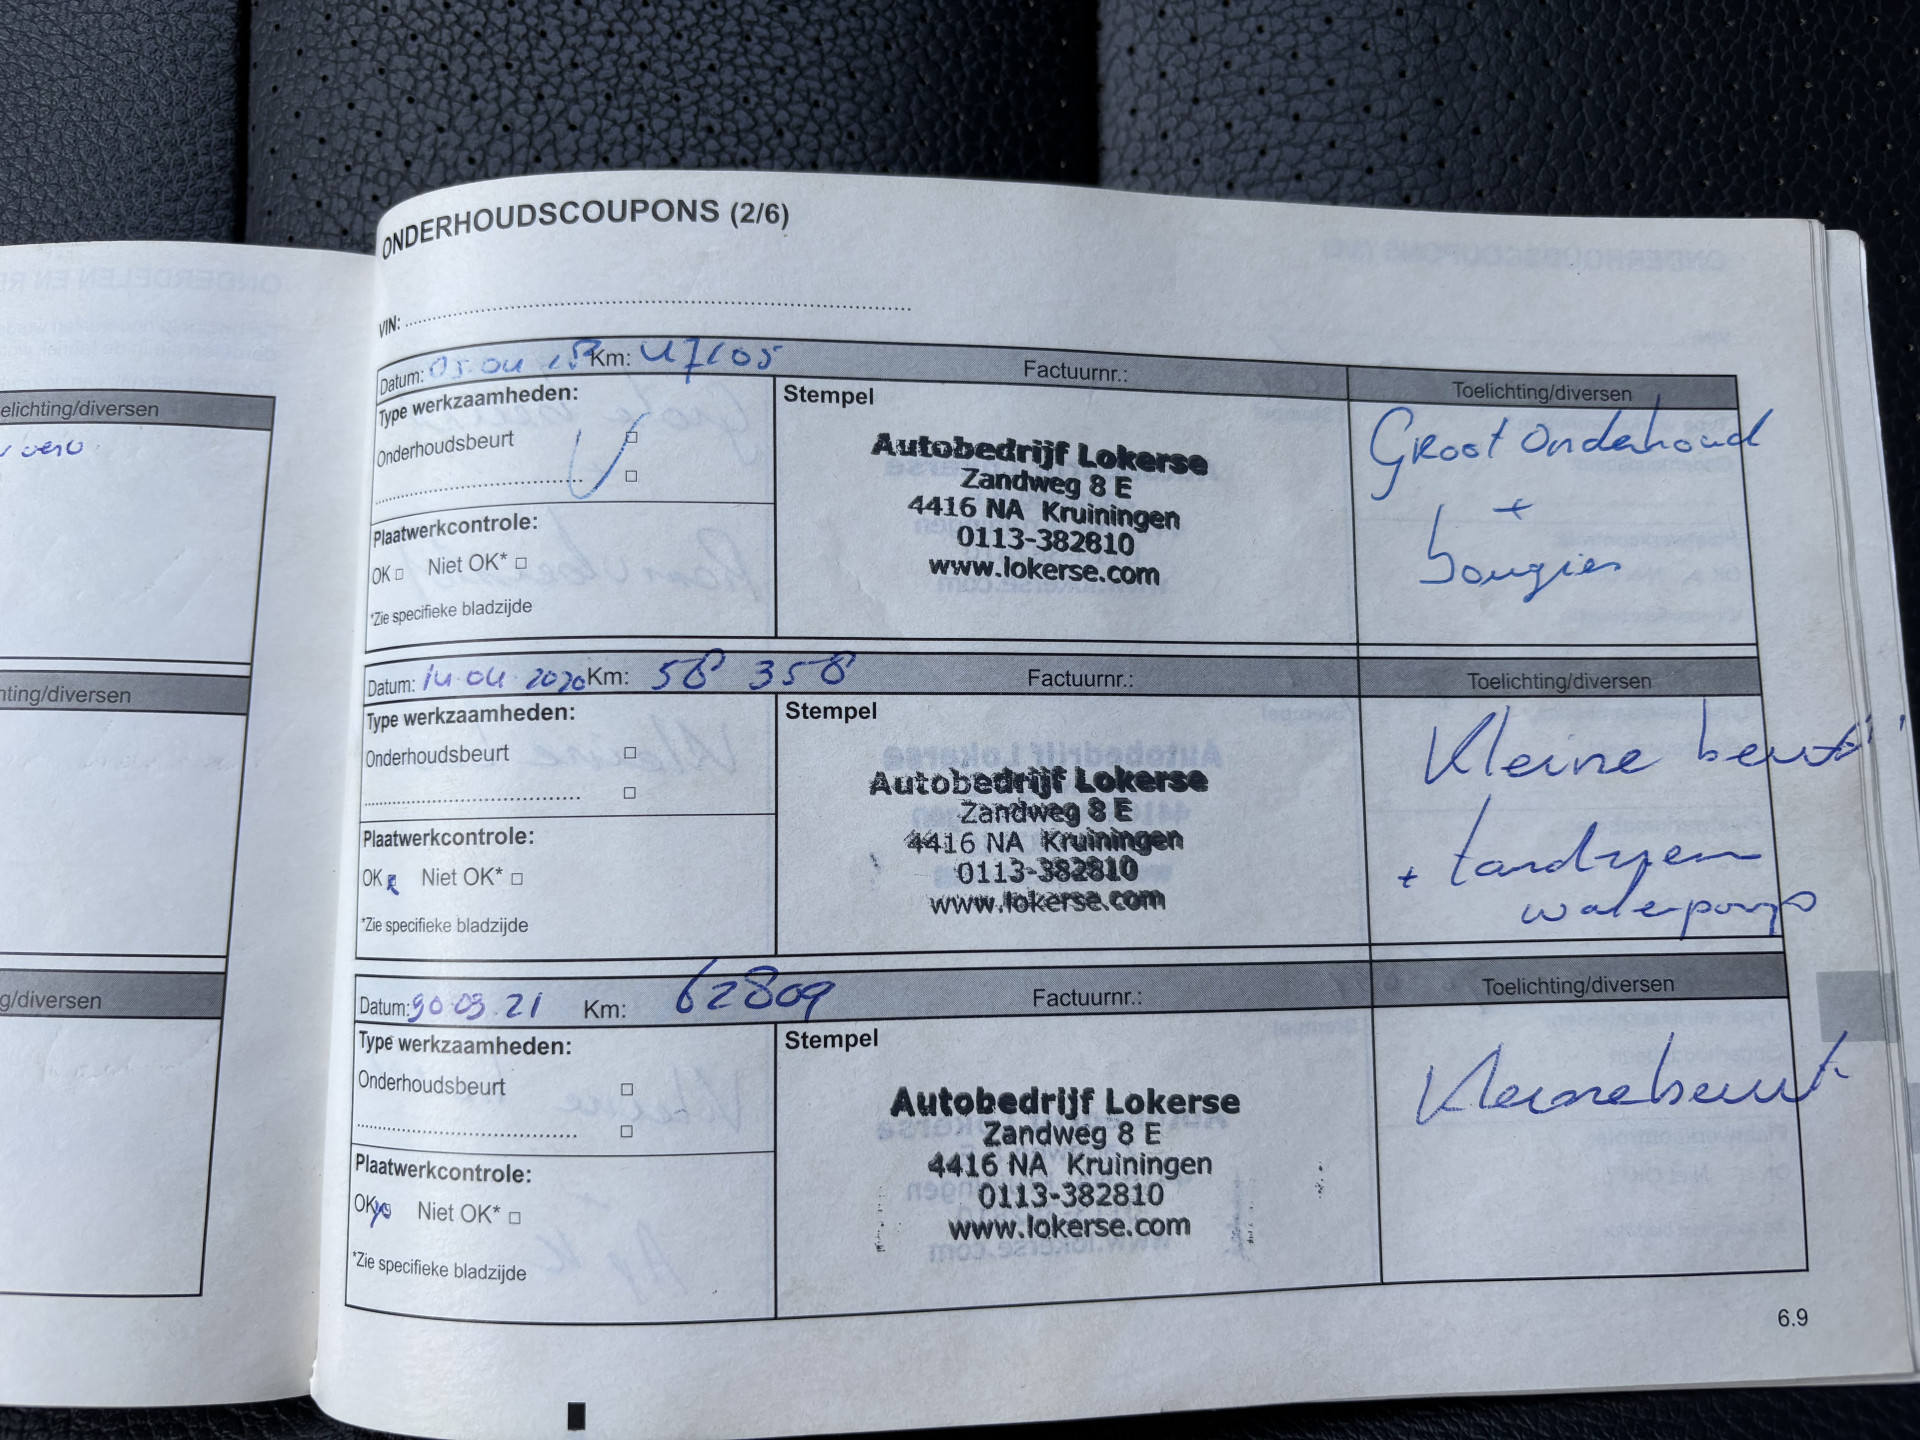 elichting/diversen
ting/diversen
g/diversen
ONDERHOUDSCOUPONS (2/6)
VIN:
Datum: 05.04 Km: 47105 Factuurnr.: Toelichting/diversen
Type werkzaamheden:
Onderhoudsbeurt
Plaatwerkcontrole:
OK Niet OK*
*Zie specifieke bladzijde
Stempel
Autobedrijf Lokerse
Zandweg 8 E
4416 NA Kruiningen
0113-382810
www.lokerse.com
Groot onderhoud
+
bougies
Datum: 14.04.2020 Km: 58 358 Factuurnr.: Toelichting/diversen
Type werkzaamheden:
Onderhoudsbeurt
Plaatwerkcontrole:
OK Niet OK*
*Zie specifieke bladzijde
Stempel
Autobedrijf Lokerse
Zandweg 8 E
4416 NA Kruiningen
0113-382810
www.lokerse.com
Kleine beurt
+ tandriem
waterpomp
Datum: 30.03.21 Km: 62809 Factuurnr.: Toelichting/diversen
Type werkzaamheden:
Onderhoudsbeurt
Plaatwerkcontrole:
OK Niet OK*
*Zie specifieke bladzijde
Stempel
Autobedrijf Lokerse
Zandweg 8 E
4416 NA Kruiningen
0113-382810
www.lokerse.com
Kleine beurt
6.9